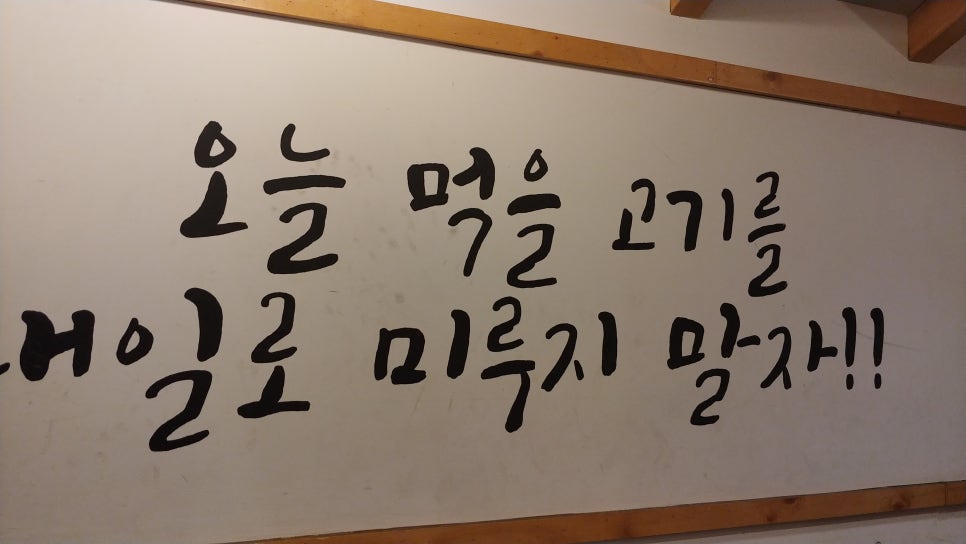 오늘 먹을 고기를
내일로 미루지 말자!!